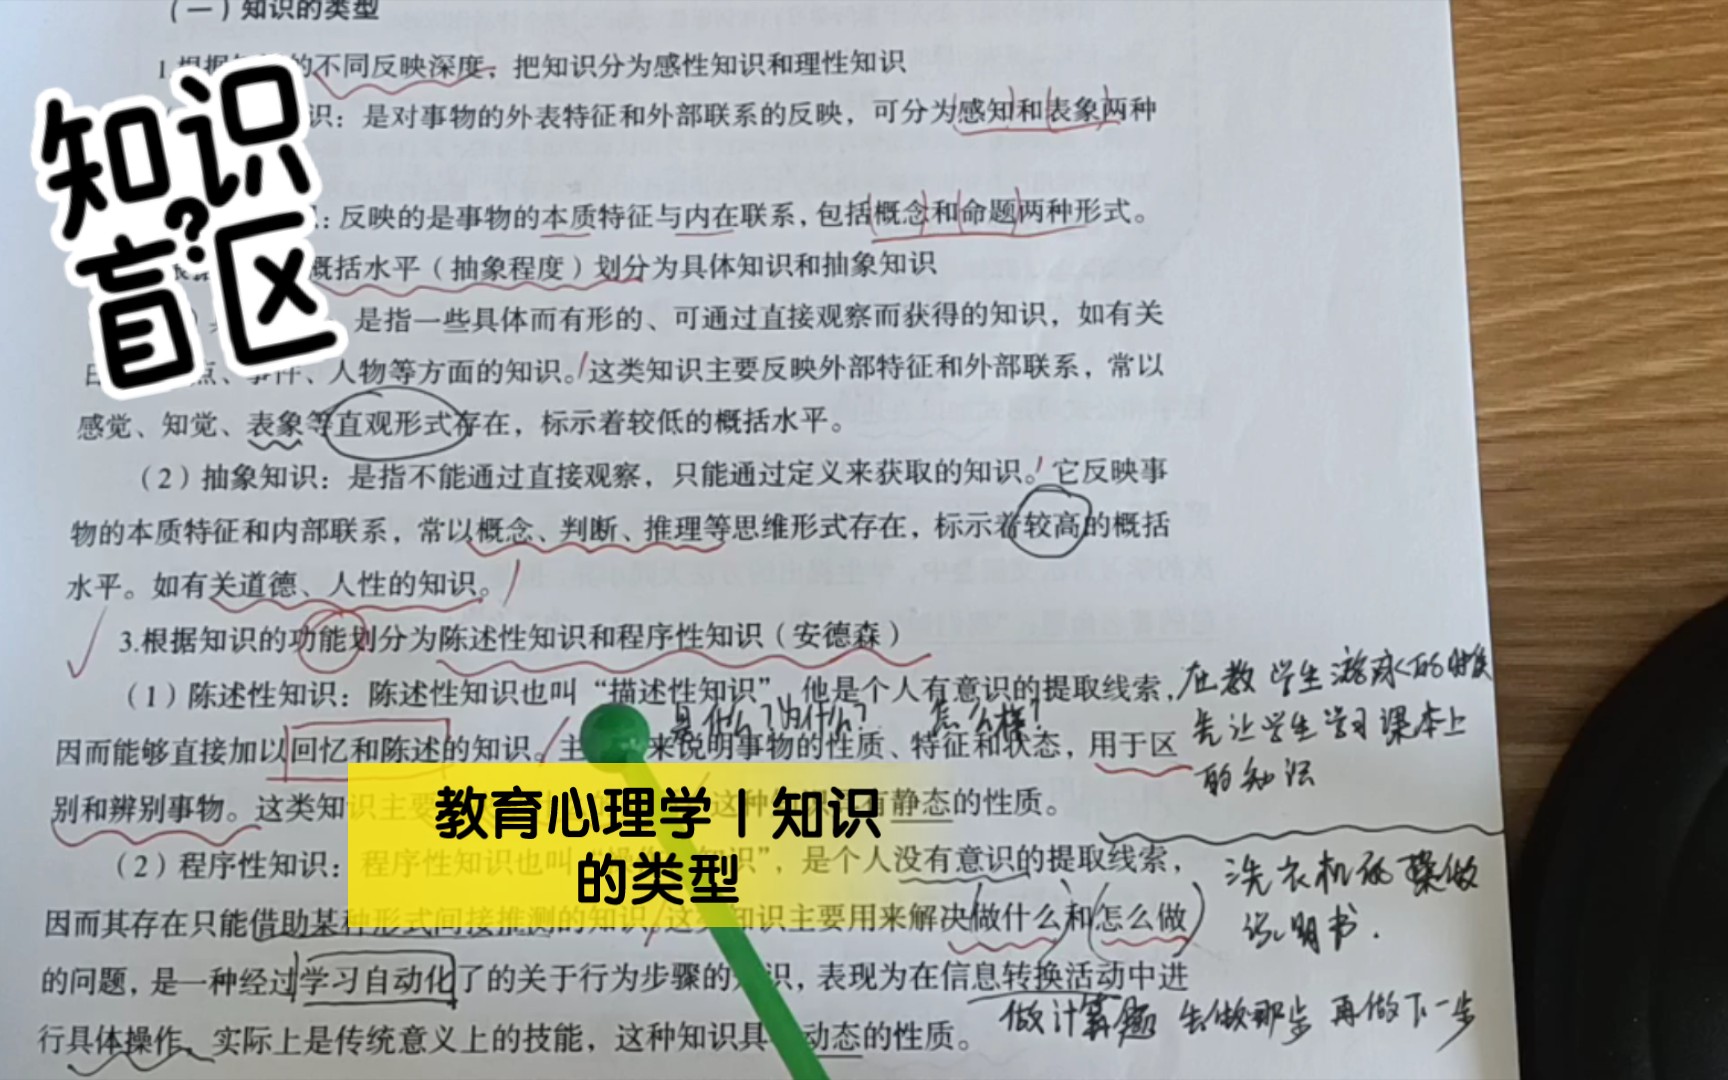 （一）知识的类型
1.根据 的不同反映深度，把知识分为感性知识和理性知识
识：是对事物的外表特征和外部联系的反映，可分为感知和表象两种
：反映的是事物的本质特征与内在联系，包括概念和命题两种形式。
概括水平（抽象程度）划分为具体知识和抽象知识
是指一些具体而有形的、可通过直接观察而获得的知识，如有关
点、事件、人物等方面的知识。这类知识主要反映外部特征和外部联系，常以
感觉、知觉、表象等直观形式存在，标示着较低的概括水平。
（2）抽象知识：是指不能通过直接观察，只能通过定义来获取的知识。它反映事
物的本质特征和内部联系，常以概念、判断、推理等思维形式存在，标示着较高的概括
水平。如有关道德、人性的知识。
3.根据知识的功能划分为陈述性知识和程序性知识（安德森）
（1）陈述性知识：陈述性知识也叫“描述性知识”，他是个人有意识的提取线索，
是什么？为什么？ 怎么样？
因而能够直接加以回忆和陈述的知识。主 来说明事物的性质、特征和状态，用于区
别和辨别事物。这类知识主要 这种知识具有静态的性质。
（2）程序性知识：程序性知识也叫“操作 知识”，是个人没有意识的提取线索，
因而其存在只能借助某种形式间接推测的知识。这类知识主要用来解决做什么和怎么做
的问题，是一种经过学习自动化了的关于行为步骤的知识，表现为在信息转换活动中进
行具体操作。实际上是传统意义上的技能，这种知识具 动态的性质。
在教学生游泳的时候
先让学生学习课本上
的知识
洗衣机的操做
说明书.
做计算题 先做那步 再做下一步
知识
盲?区
教育心理学丨知识
的类型